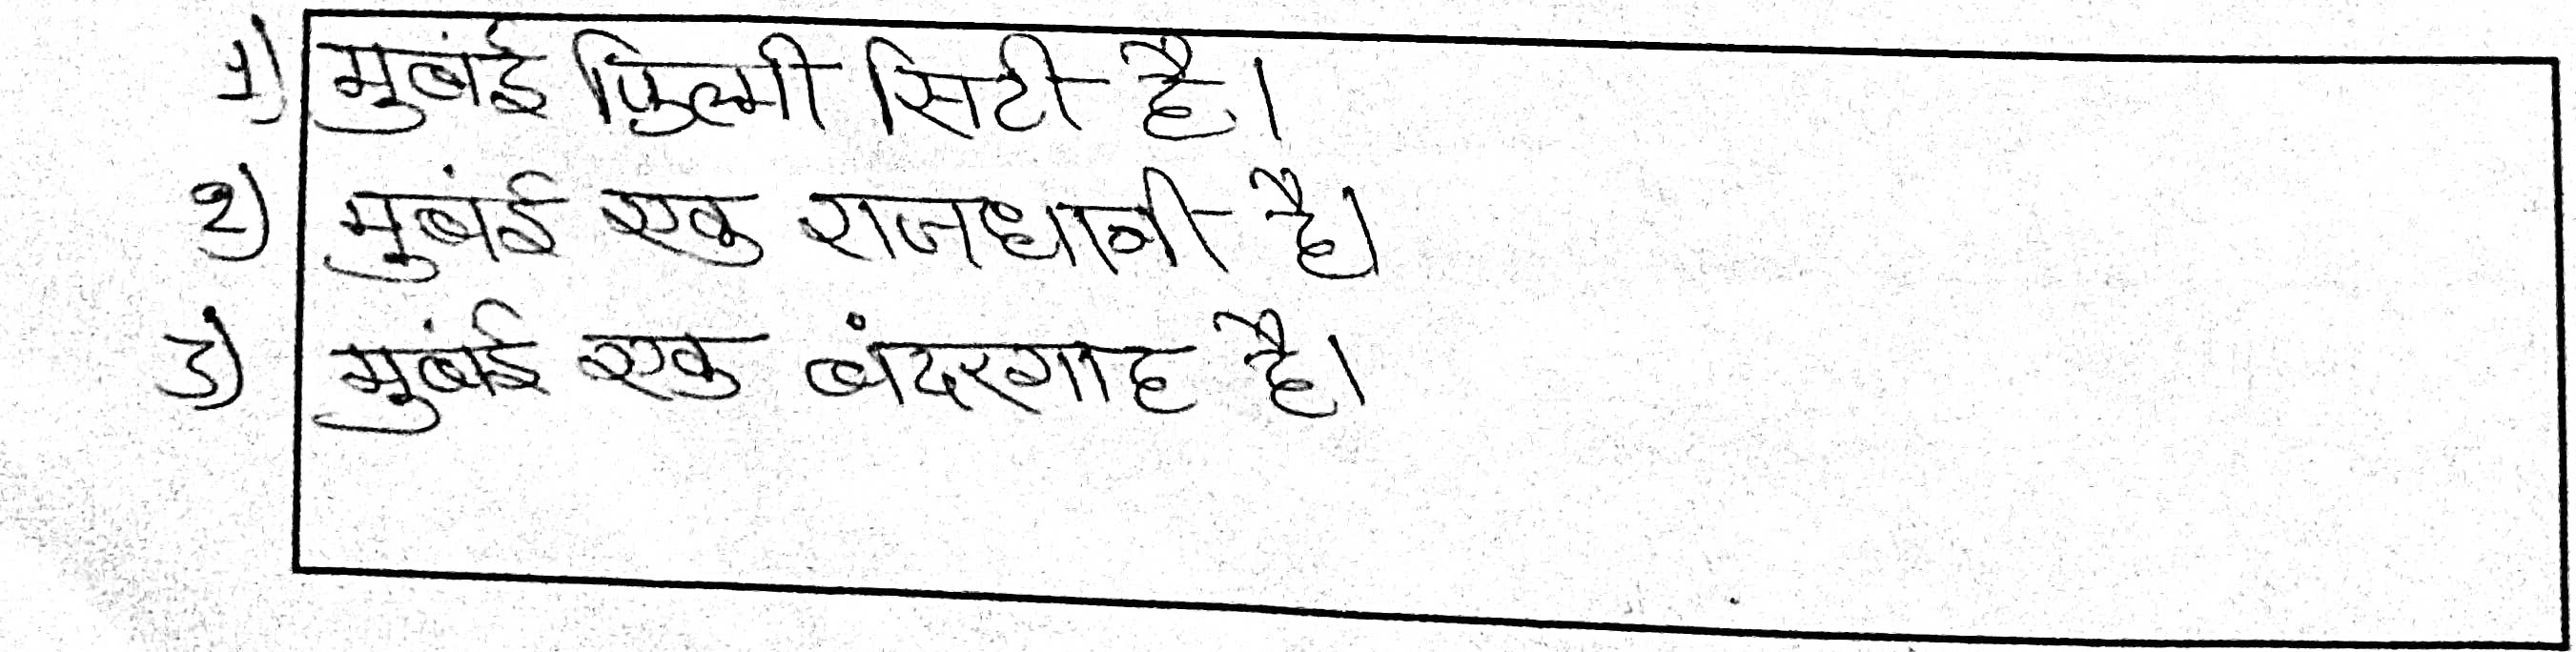 1) मुबंई फिल्मी सिटी है।
२) मुबंई एक राजधानी है।
3) मुबंई एक बंदरगाह है।